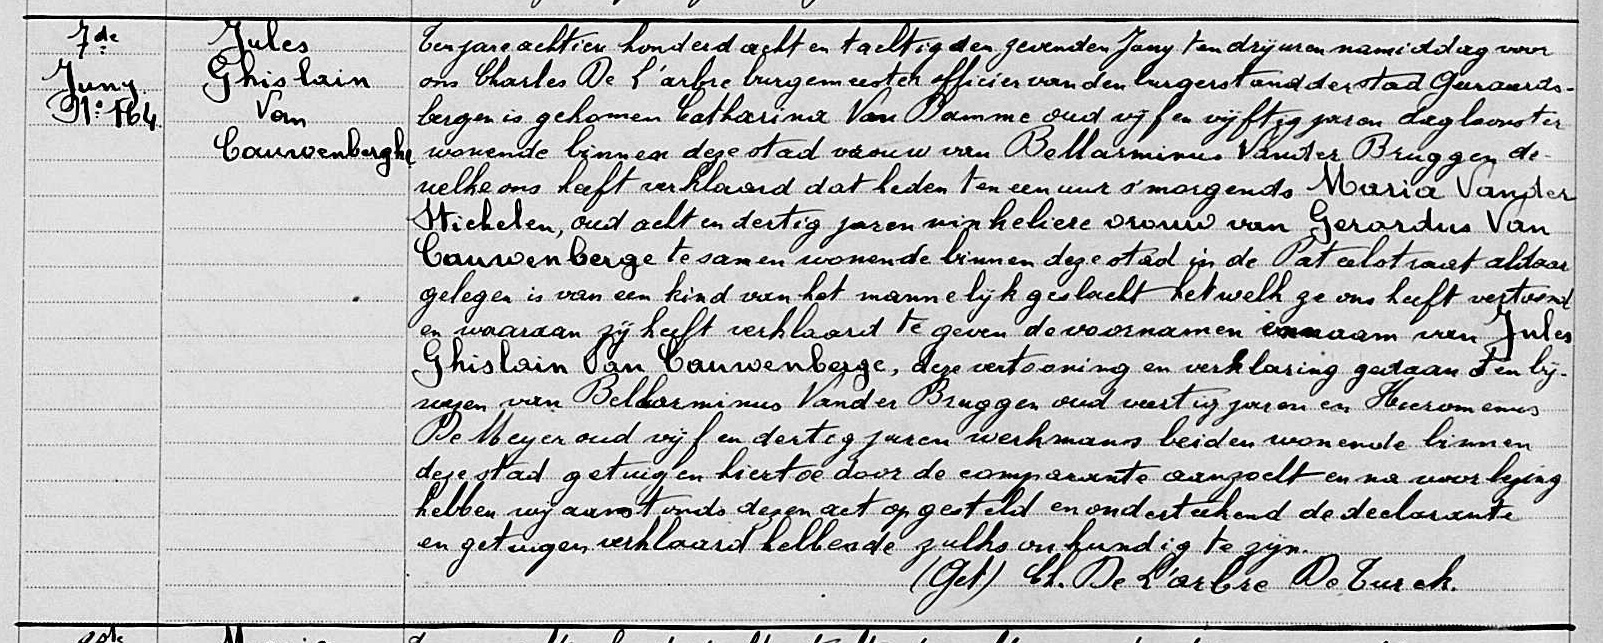 7de
Juny
No. 164
Jules
Ghislain
Van
Cauwenberghe
Ten jare achtien honderd acht en tachtig den zevenden Juny ten drij uren namiddag voor
ons Charles De L'arbre burgemeester officier van den burgerstand der stad Geraards-
bergen is gekomen Catharina Van Damme oud vijf en vijftig jaren dagloonster
wonende binnen deze stad vrouw van Bellarminus Vander Bruggen de-
welke ons heeft verklaard dat heden ten een uur s'morgends Maria Vander
Stichelen, oud acht en dertig jaren winkeliere vrouw van Gerardus Van
Cauwenberge te samen wonende binnen deze stad in de Pateelstraat aldaar
gelegen is van een kind van het mannelijk geslacht hetwelk ze ons heeft vertoond
en waaraan zij heeft verklaard te geven de voornamen en naam van Jules
Ghislain Van Cauwenberge, deze vertooning en verklaring gedaan ten bij-
wezen van Bellarminus Vander Bruggen oud veertig jaren en Hieronemus
De Meyer oud vijf en dertig jaren werkmans beiden wonende binnen
deze stad getuigen hiertoe door de comparante aanzocht en na voorlezing
hebben wij aanstonds dezen act opgesteld en onderteekend de declarante
en getuigen verklaard hebbende zulks onkundig te zijn.
(Get) Ch. De L'arbre De Turck.